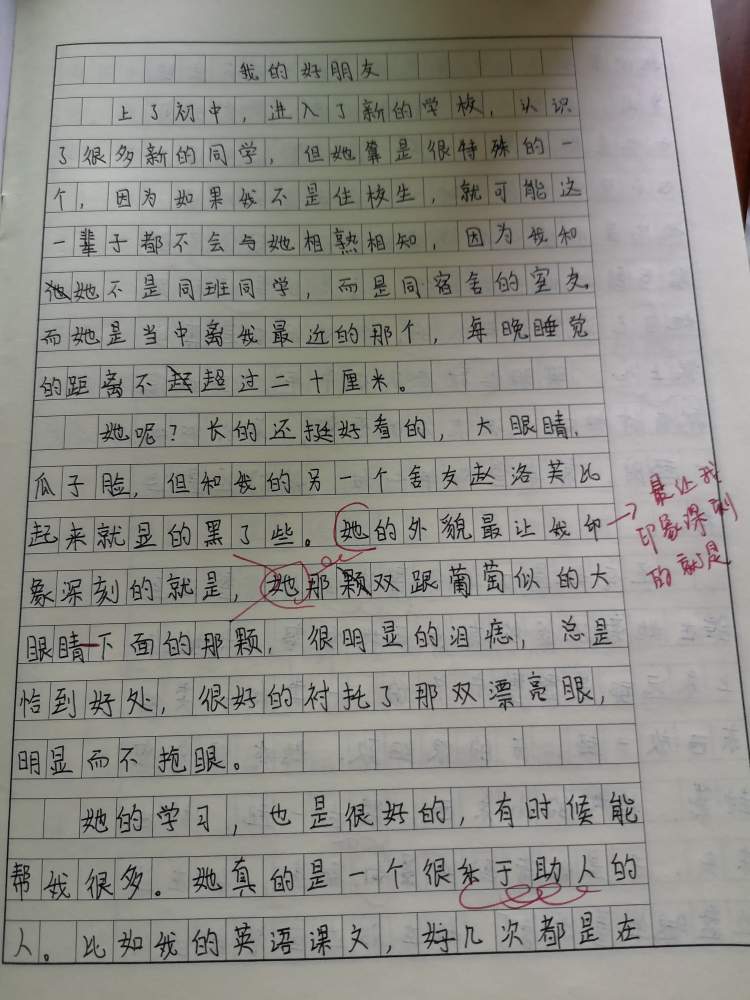 我的好朋友
上了初中，进入了新的学校，认识
了很多新的同学，但她算是很特殊的一
个，因为如果我不是住校生，就可能这
一辈子都不会与她相熟相知，因为我和
她不是同班同学，而是同宿舍的室友。
而她是当中离我最近的那个，每晚睡觉
的距离不超过二十厘米。
她呢？长的还挺好看的，大眼睛，
瓜子脸，但和我的另一个舍友赵洛芙比
起来就显的黑了些。她的外貌最让我印
象深刻的就是，她那双跟葡萄似的大
眼睛下面的那颗，很明显的泪痣，总是
恰到好处，很好的衬托了那双漂亮眼，
明显而不抢眼。
她的学习，也是很好的，有时候能
帮我很多。她真的是一个很乐于助人的
人。比如我的英语课文，好几次都是在
最让我
印象深刻
的就是